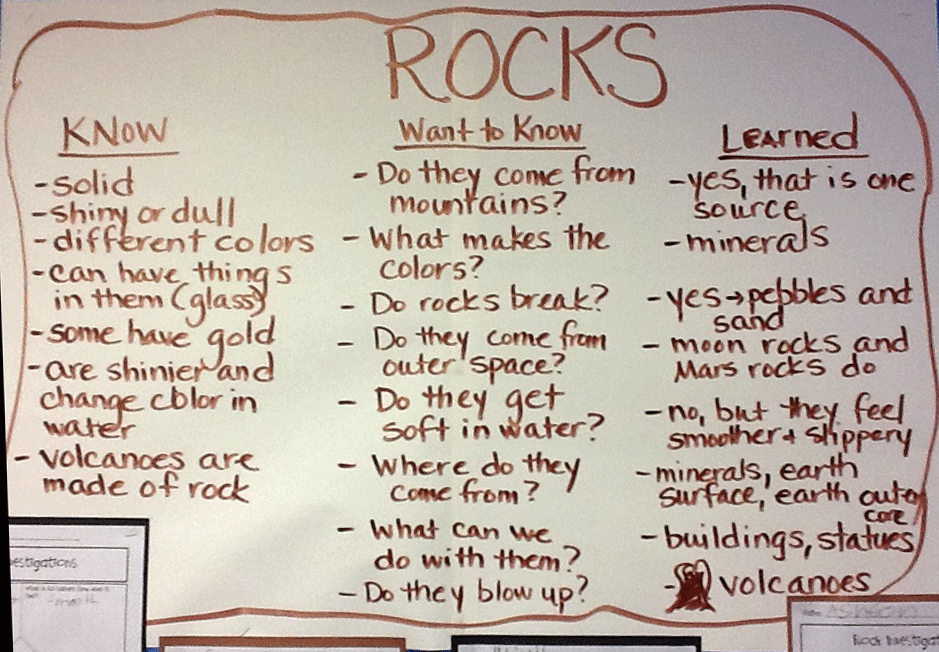 ROCKS
KNOW
-solid
-shiny or dull
-different colors
-can have things
in them (glass)
-some have gold
-are shinier and
change color in
water
-volcanoes are
made of rock
Want to Know
- Do they come from
mountains?
- What makes the
colors?
- Do rocks break?
- Do they come from
outer space?
- Do they get
soft in water?
- Where do they
come from?
- What can we
do with them?
- Do they blow up?
Learned
-yes, that is one
source
-minerals
-yes→pebbles and
sand
- moon rocks and
Mars rocks do
-no, but they feel
smoother + slippery
-minerals, earth
surface, earth outer
core
-buildings, statues
- volcanoes
estigations
Rock Investigat